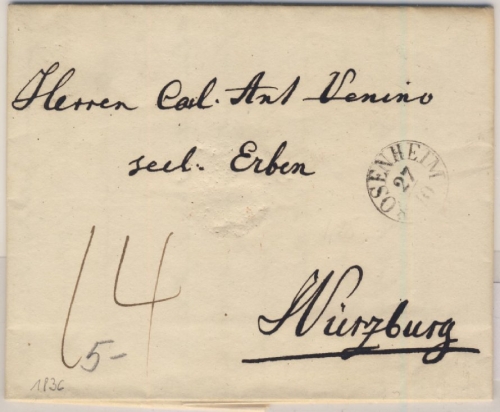 Herren Cal. Ant Venino
seel. Erben
ROSENHEIM
27
10
14
Würzburg
5-
1836